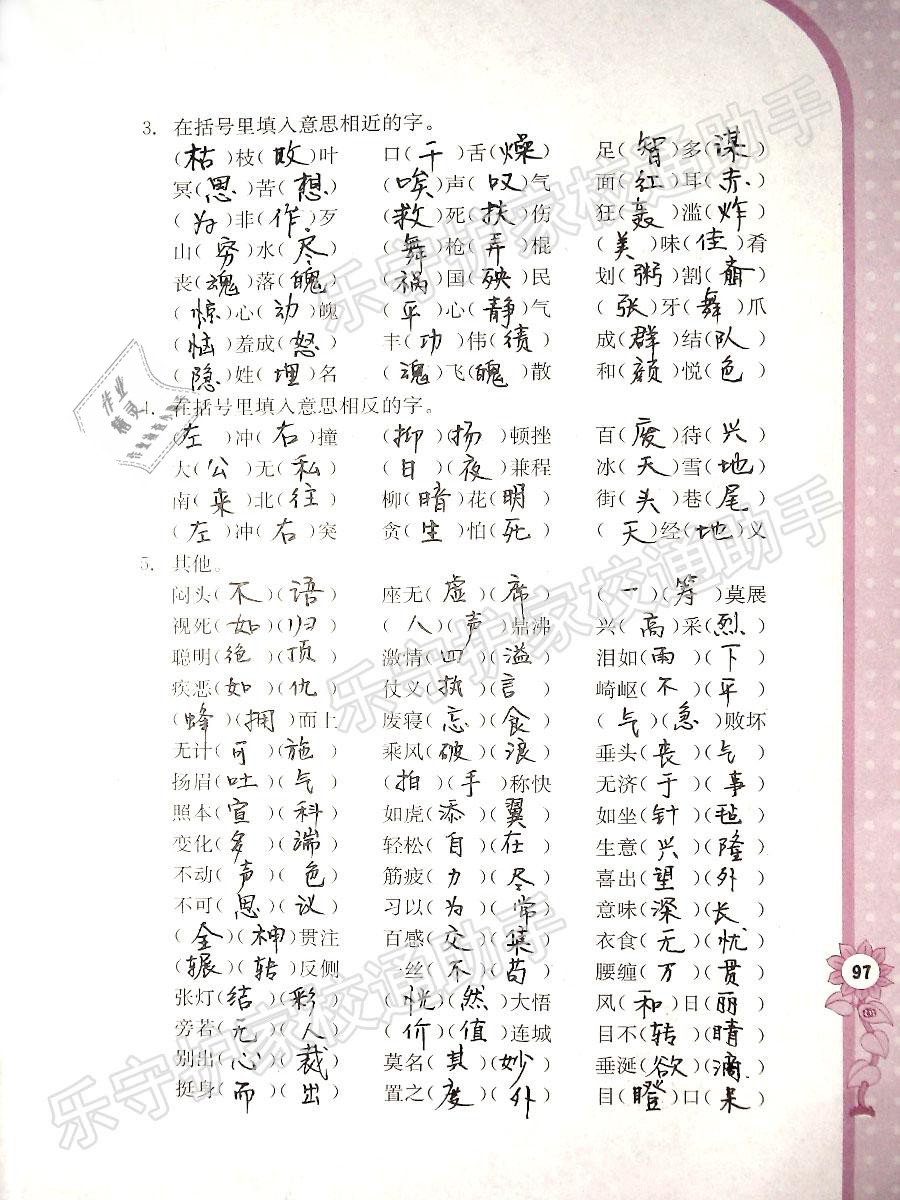 3. 在括号里填入意思相近的字。
(枯)枝(败)叶 口(干)舌(燥) 足(智)多(谋)
冥(思)苦(想) (唉)声(叹)气 面(红)耳(赤)
(为)非(作)歹 (救)死(扶)伤 狂(轰)滥(炸)
山(穷)水(尽) (舞)枪(弄)棍 (美)味(佳)肴
丧(魂)落(魄) (祸)国(殃)民 划(粥)割(齑)
(惊)心(动)魄 (平)心(静)气 (张)牙(舞)爪
(恼)羞成(怒) 丰(功)伟(绩) 成(群)结(队)
(隐)姓(埋)名 (魂)飞(魄)散 和(颜)悦(色)
4. 在括号里填入意思相反的字。
(左)冲(右)撞 (抑)(扬)顿挫 百(废)待(兴)
大(公)无(私) (日)(夜)兼程 冰(天)雪(地)
南(来)北(往) 柳(暗)花(明) 街(头)巷(尾)
(左)冲(右)突 贪(生)怕(死) (天)经(地)义
5. 其他。
闷头(不)(语) 座无(虚)(席) (一)(筹)莫展
视死(如)(归) (人)(声)鼎沸 兴(高)采(烈)
聪明(绝)(顶) 激情(四)(溢) 泪如(雨)(下)
疾恶(如)(仇) 仗义(执)(言) 崎岖(不)(平)
(蜂)(拥)而上 废寝(忘)(食) (气)(急)败坏
无计(可)(施) 乘风(破)(浪) 垂头(丧)(气)
扬眉(吐)(气) (拍)(手)称快 无济(于)(事)
照本(宣)(科) 如虎(添)(翼) 如坐(针)(毡)
变化(多)(端) 轻松(自)(在) 生意(兴)(隆)
不动(声)(色) 筋疲(力)(尽) 喜出(望)(外)
不可(思)(议) 习以(为)(常) 意味(深)(长)
(全)(神)贯注 百感(交)(集) 衣食(无)(忧)
(辗)(转)反侧 一丝(不)(苟) 腰缠(万)(贯)
张灯(结)(彩) (恍)(然)大悟 风(和)日(丽)
旁若(无)(人) (价)(值)连城 目不(转)(睛)
别出(心)(裁) 莫名(其)(妙) 垂涎(欲)(滴)
挺身(而)(出) 置之(度)(外) 目(瞪)口(呆)
97
作业
精灵
乐守护家校通助手
乐守护家校通助手
乐守护家校通助手